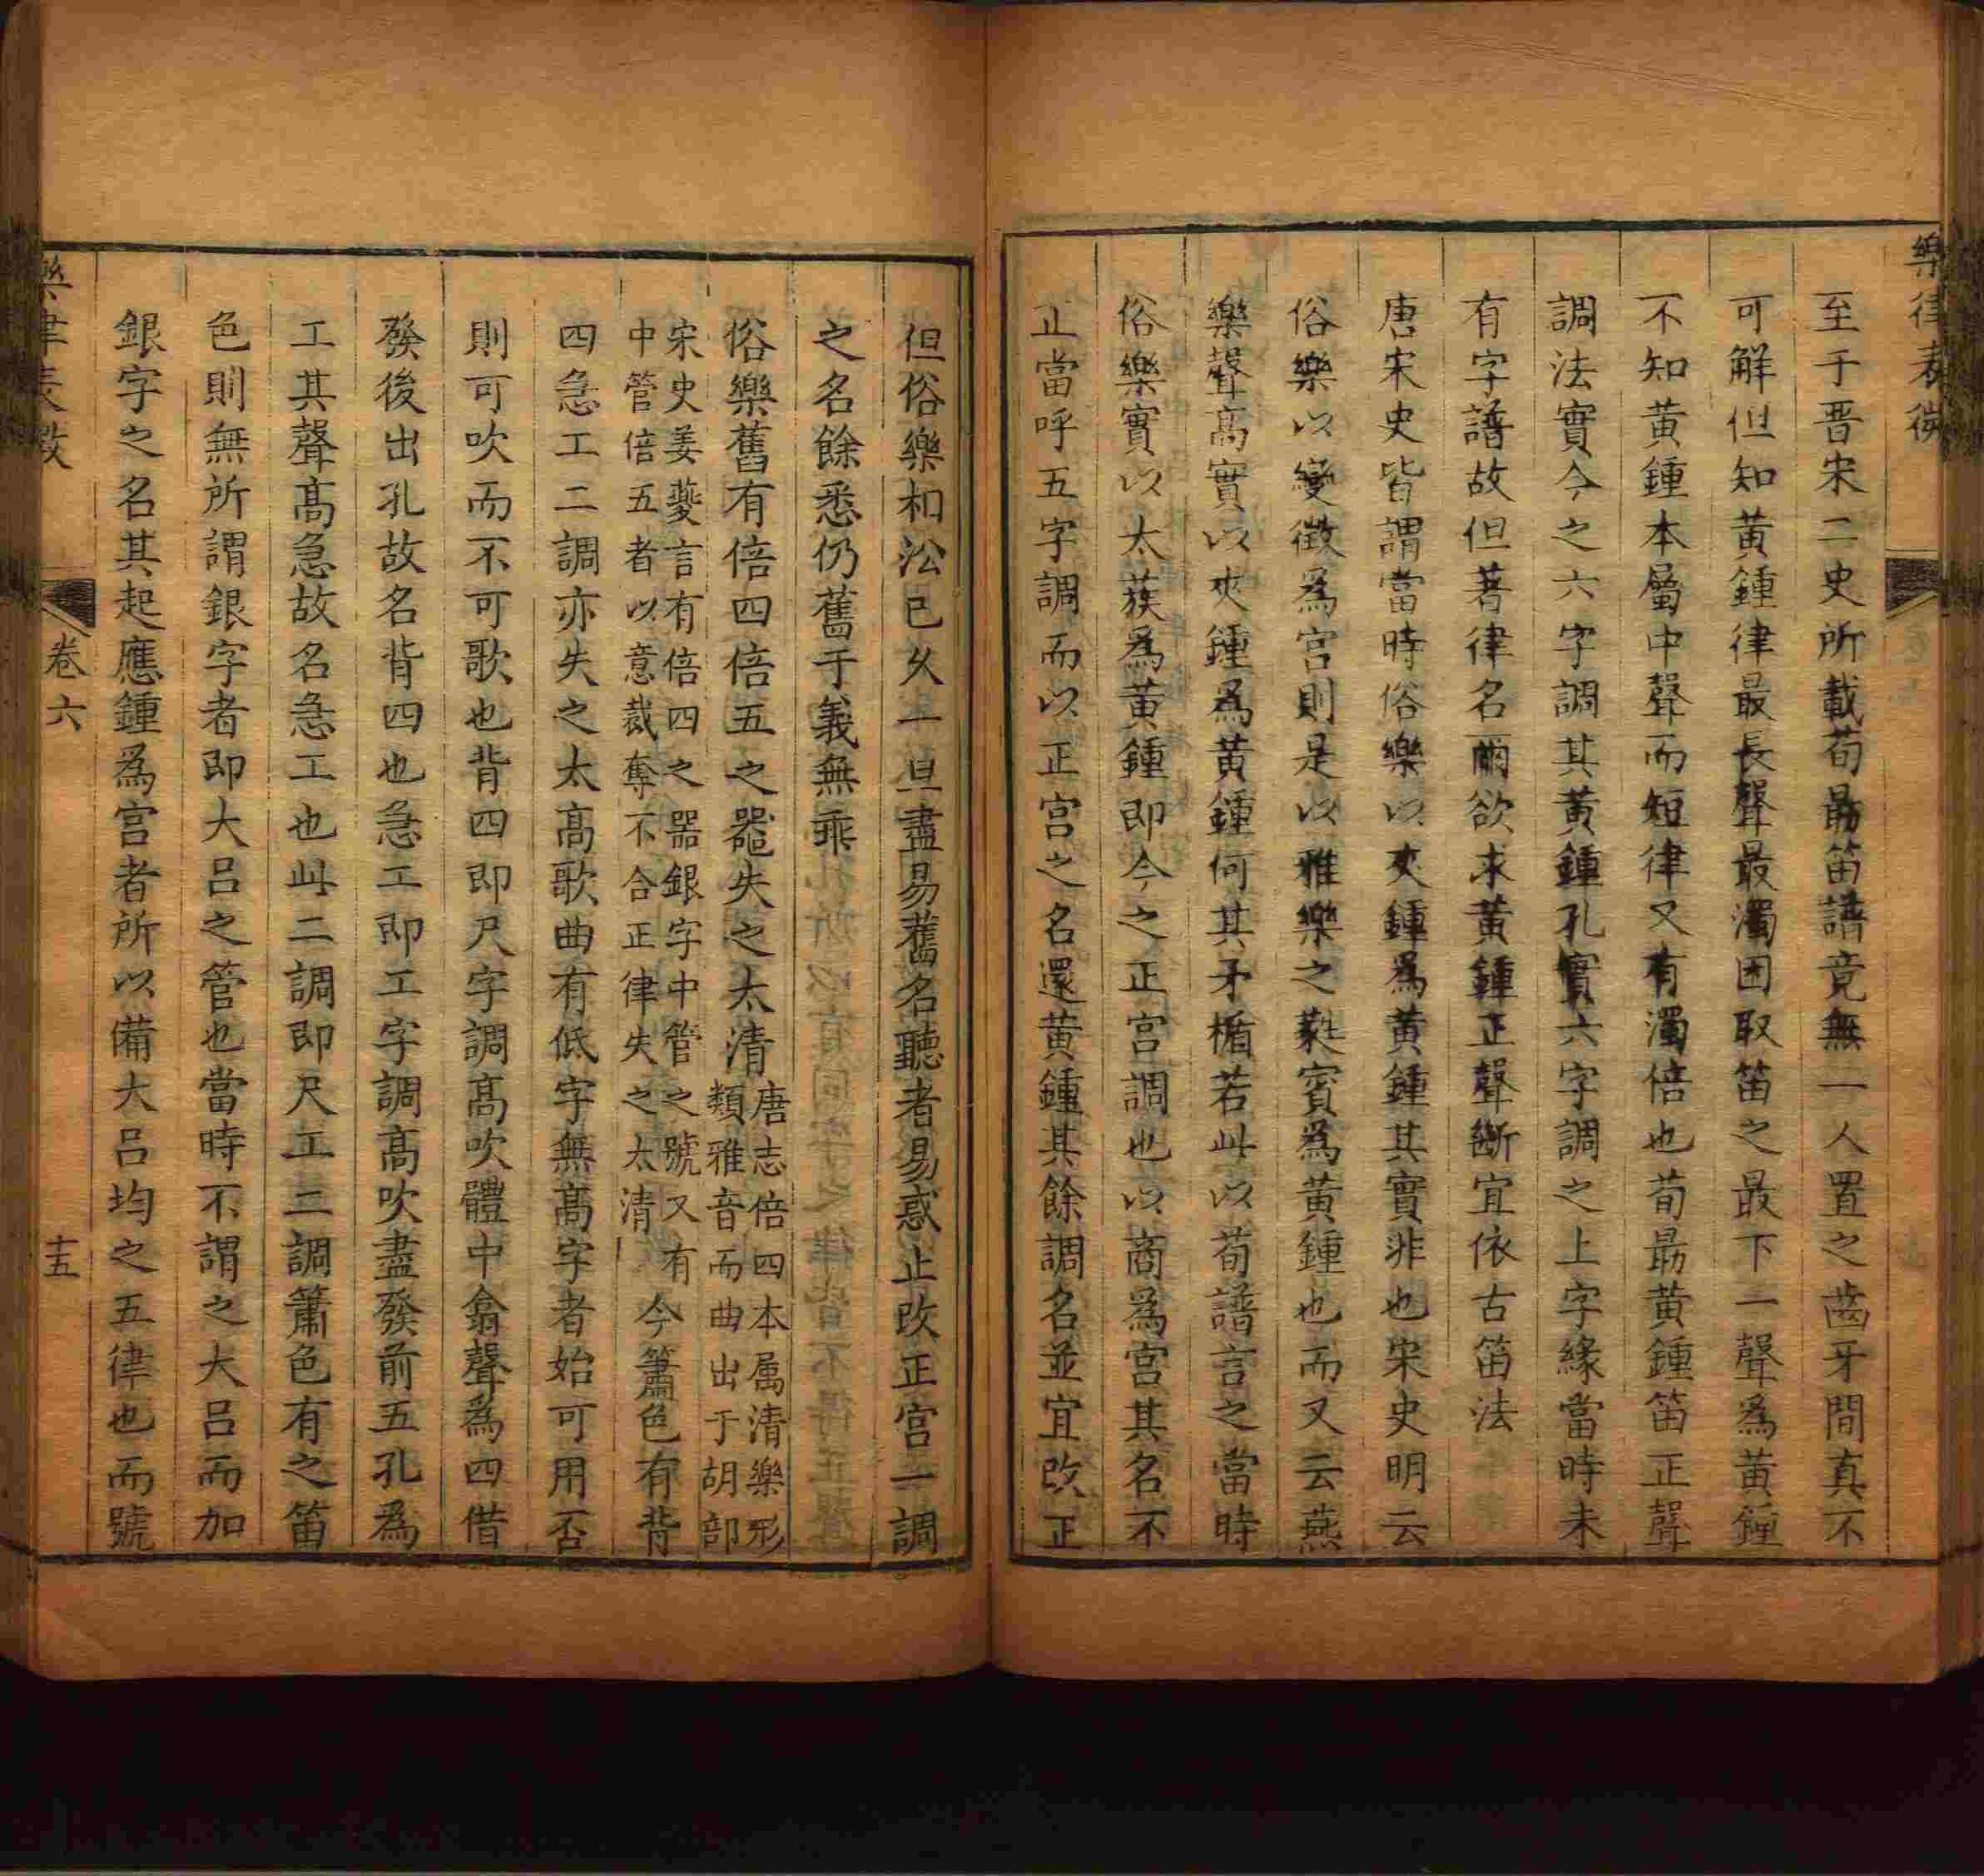 樂律表微
至于晋宋二史所載荀勗笛譜竟無一人置之齒牙間真不
可解但知黃鍾律最長聲最濁因取笛之最下一聲爲黃鍾
不知黃鍾本屬中聲而短律又有濁倍也荀勗黃鍾笛正聲
調法實今之六字調其黃鍾孔實六字調之上字緣當時未
有字譜故但著律名爾欲求黃鍾正聲斷宜依古笛法
唐宋史皆謂當時俗樂以夾鍾爲黃鍾其實非也宋史明云
俗樂以變徵爲宮則是以雅樂之蕤賓爲黃鍾也而又云燕
樂聲高實以夾鍾爲黃鍾何其矛楯若此以荀譜言之當時
俗樂實以太蔟爲黃鍾即今之正宮調也以商爲宮其名不
正當呼五字調而以正宮之名還黃鍾其餘調名並宜改正
但俗樂相沿已久一旦盡易舊名聽者易惑止改正宮一調
之名餘悉仍舊于義無乖
俗樂舊有倍四倍五之器失之太清
唐志倍四本属清樂形
類雅音而曲出于胡部
宋史姜夔言有倍四之器銀字中管之號又有
中管倍五者以意裁奪不合正律失之太清
今簫色有背
四急工二調亦失之太高歌曲有低字無高字者始可用否
則可吹而不可歌也背四即尺字調高吹體中翕聲爲四借
發後出孔故名背四也急工即工字調高吹盡發前五孔爲
工其聲高急故名急工也此二調即尺工二調簫色有之笛
色則無所謂銀字者即大呂之管也當時不謂之大呂而加
銀字之名其起應鍾爲宮者所以備大呂均之五律也而號
樂律表微
卷六
十五